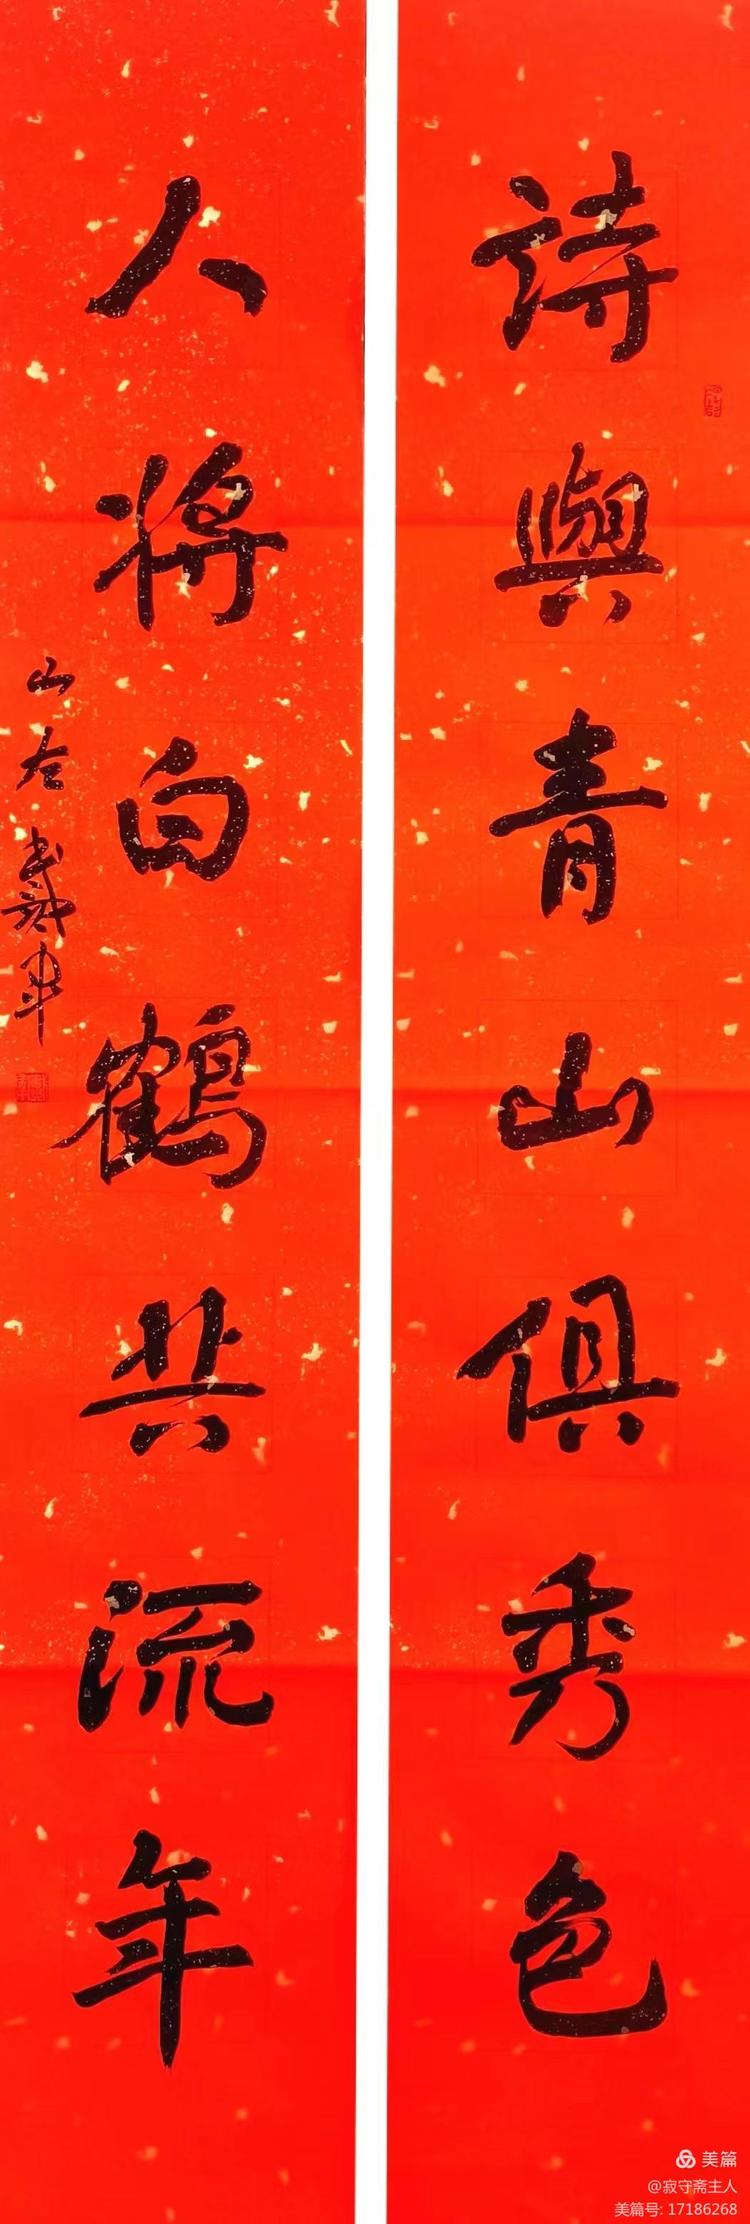 詩與青山俱秀色
人將白鶴共流年
山左
美篇
@寂守斋主人
美篇号: 17186268